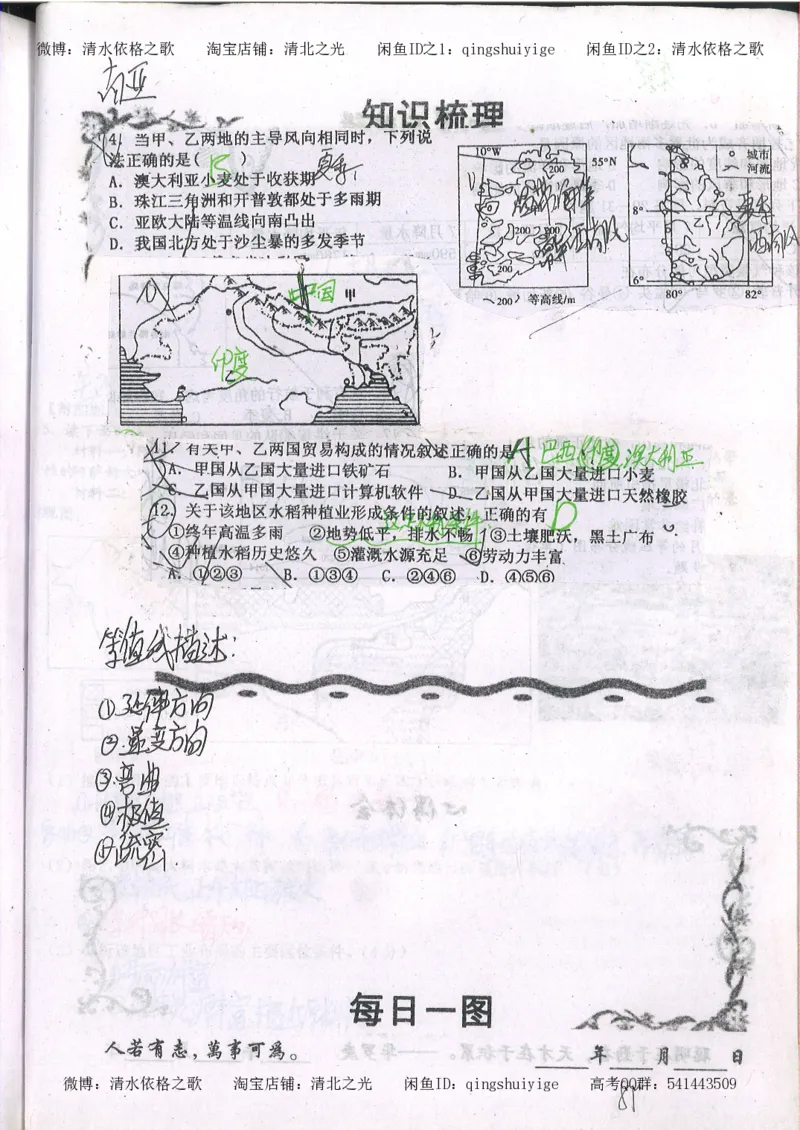 微博：清水依格之歌 淘宝店铺：清北之光 闲鱼ID之1：qingshuiyige 闲鱼ID之2：清水依格之歌
南亚
知识梳理
4. 当甲、乙两地的主导风向相同时，下列说
法正确的是（ B ）
A．澳大利亚小麦处于收获期 夏季
B．珠江三角洲和开普敦都处于多雨期
C．亚欧大陆等温线向南凸出
D．我国北方处于沙尘暴的多发季节
10°W
55°N
200
200
200
200
西南风
200 等高线/m
城市
河流
8°
乙
6°
80°
82°
夏季
西南风
中国
甲
印度
乙
11. 有关甲、乙两国贸易构成的情况叙述正确的是 A 巴西 印度 澳大利亚
A．甲国从乙国大量进口铁矿石 B．甲国从乙国大量进口小麦
C．乙国从甲国大量进口计算机软件 D．乙国从甲国大量进口天然橡胶
12. 关于该地区水稻种植业形成条件的叙述，正确的有 D
①终年高温多雨 ②地势低平，排水不畅 ③土壤肥沃，黑土广布
④种植水稻历史悠久 ⑤灌溉水源充足 ⑥劳动力丰富
A．①②③ B．①③④ C．②④⑥ D．④⑤⑥
等值线描述：
①延伸方向
②递变方向
③弯曲
④极值
⑤疏密
每日一图
人若有志，萬事可為。
年 月 日
微博：清水依格之歌 淘宝店铺：清北之光 闲鱼ID：qingshuiyige 高考QQ群：541443509